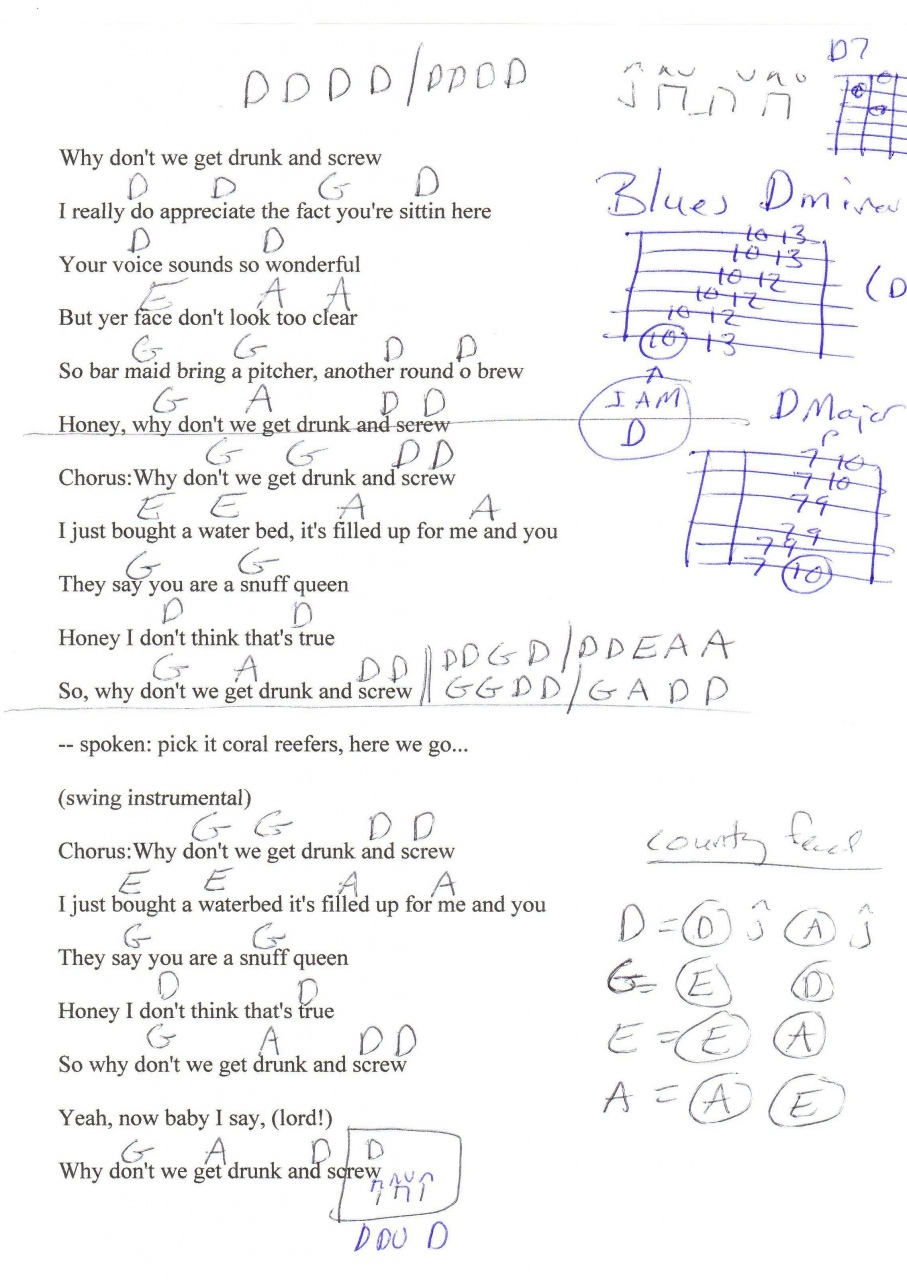 D D D D / D D D D
D7
Why don't we get drunk and screw
Blues Dminor
D D G D
I really do appreciate the fact you're sittin here
10 13
10 13
10 12
10 12
10 12
10 13
(D
D D
Your voice sounds so wonderful
E A A
But yer face don't look too clear
G G D D
So bar maid bring a pitcher, another round o brew
A
I AM
D
D Major
G A D D
Honey, why don't we get drunk and screw
7 10
7 10
7 9
7 9
7 9
7 10
G G D D
Chorus:Why don't we get drunk and screw
E E A A
I just bought a water bed, it's filled up for me and you
G G
They say you are a snuff queen
D D
Honey I don't think that's true
G A D D || D D G D / D D E A A
So, why don't we get drunk and screw || G G D D / G A D D
-- spoken: pick it coral reefers, here we go...
(swing instrumental)
G G D D
Chorus:Why don't we get drunk and screw
E E A A
I just bought a waterbed it's filled up for me and you
G G
They say you are a snuff queen
D D
Honey I don't think that's true
G A D D
So why don't we get drunk and screw
country
D = D A
G = E D
E = E A
A = A E
Yeah, now baby I say, (lord!)
G A D D
Why don't we get drunk and screw
D D U D